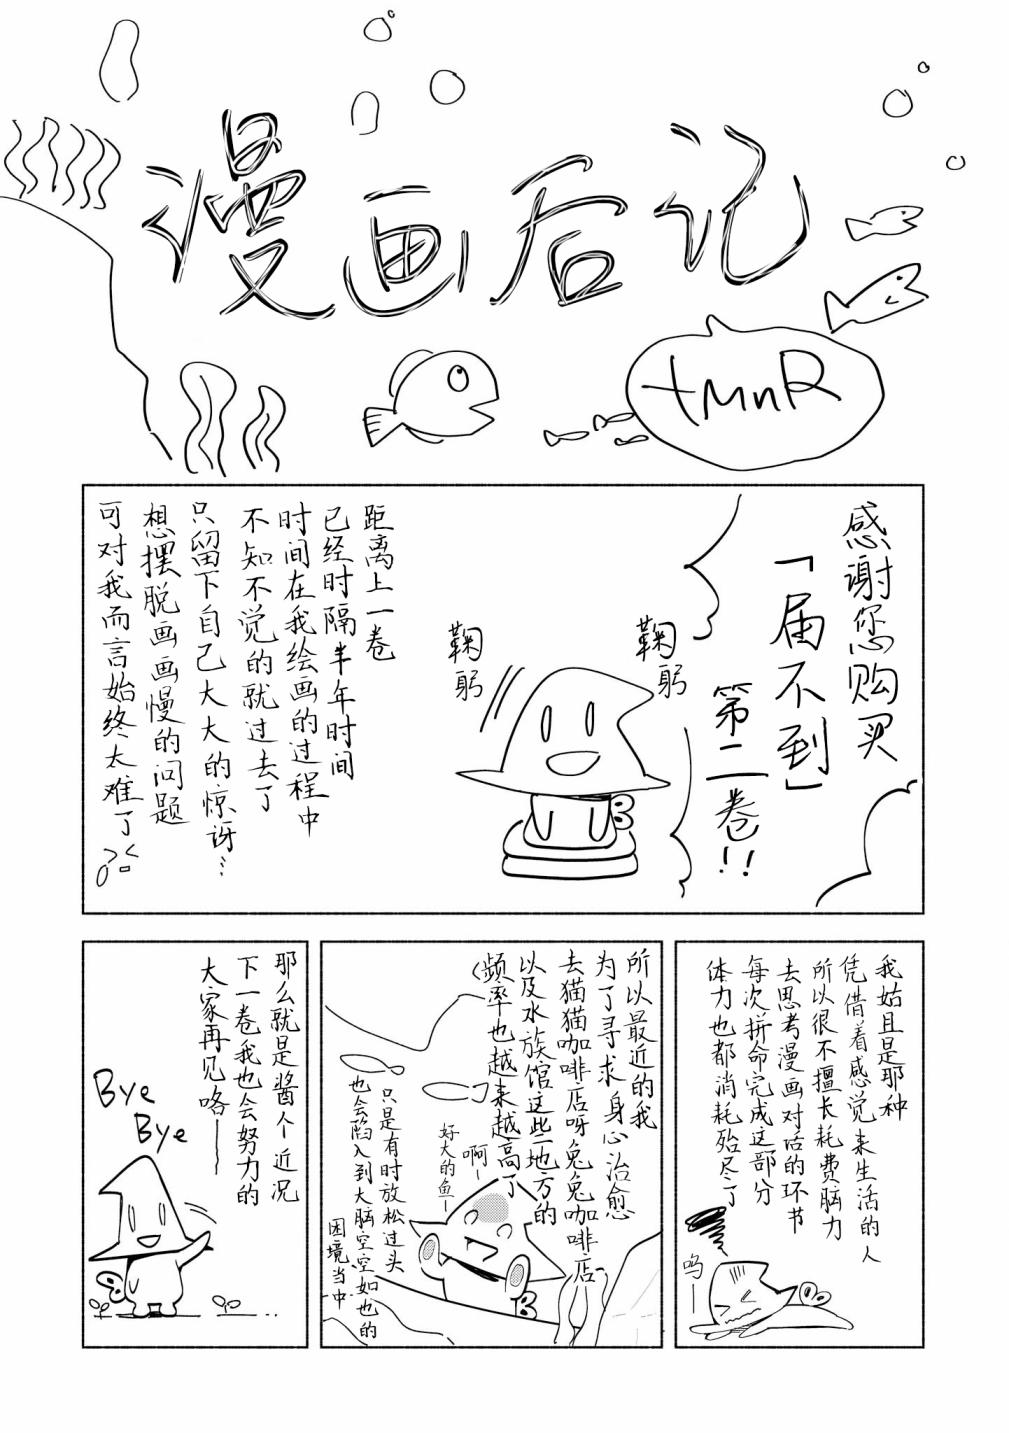 漫画后记
tMnR
感谢您购买
「届不到」
第二卷!!
鞠躬
鞠躬
距离上一卷
已经时隔半年时间
时间在我绘画的过程中
不知不觉的就过去了
只留下自己大大的惊讶…
想摆脱画画慢的问题
可对我而言始终太难了
我姑且是那种
凭借着感觉来生活的人
所以很不擅长耗费脑力
去思考漫画对话的环节
每次拼命完成这部分
体力也都消耗殆尽了
呜—
所以最近的我
为了寻求身心治愈
去猫猫咖啡店呀兔兔咖啡店
以及水族馆这些地方的
频率也越来越高了
啊—
好大的鱼—
只是有时放松过头
也会陷入到大脑空空如也的
困境当中
那么就是酱个近况
下一卷我也会努力的
大家再见咯——
Bye
Bye